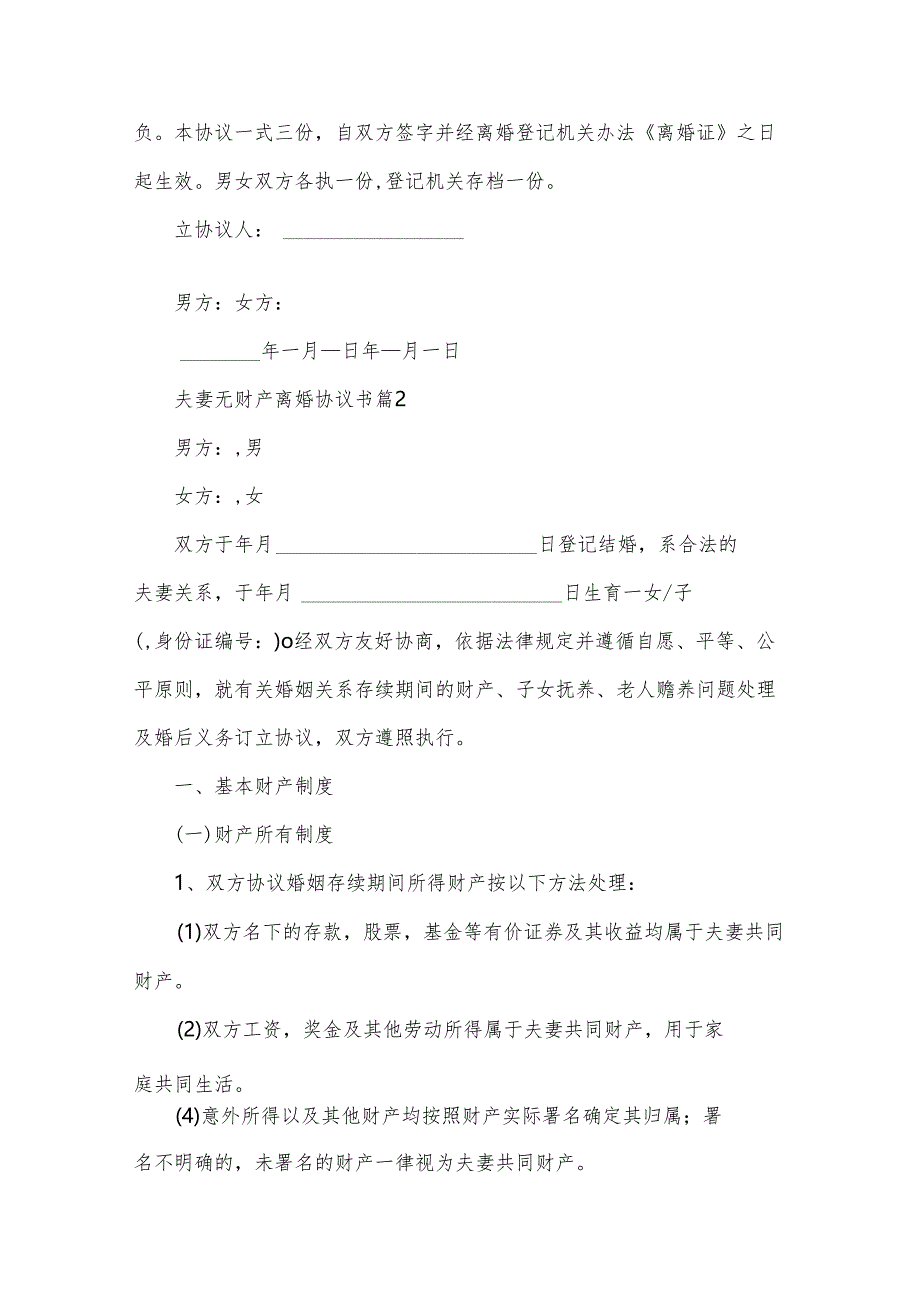 负。本协议一式三份，自双方签字并经离婚登记机关办法《离婚证》之日
起生效。男女双方各执一份,登记机关存档一份。
立协议人： __________________
男方：女方：
________年一月—日年—月一日
夫妻无财产离婚协议书篇2
男方：,男
女方：,女
双方于年月__________________________日登记结婚，系合法的
夫妻关系，于年月 __________________________日生育一女/子
(,身份证编号：)o经双方友好协商，依据法律规定并遵循自愿、平等、公
平原则，就有关婚姻关系存续期间的财产、子女抚养、老人赡养问题处理
及婚后义务订立协议，双方遵照执行。
一、基本财产制度
(一)财产所有制度
1、双方协议婚姻存续期间所得财产按以下方法处理：
(1)双方名下的存款，股票，基金等有价证券及其收益均属于夫妻共同
财产。
(2)双方工资，奖金及其他劳动所得属于夫妻共同财产，用于家
庭共同生活。
(4)意外所得以及其他财产均按照财产实际署名确定其归属；署
名不明确的，未署名的财产一律视为夫妻共同财产。